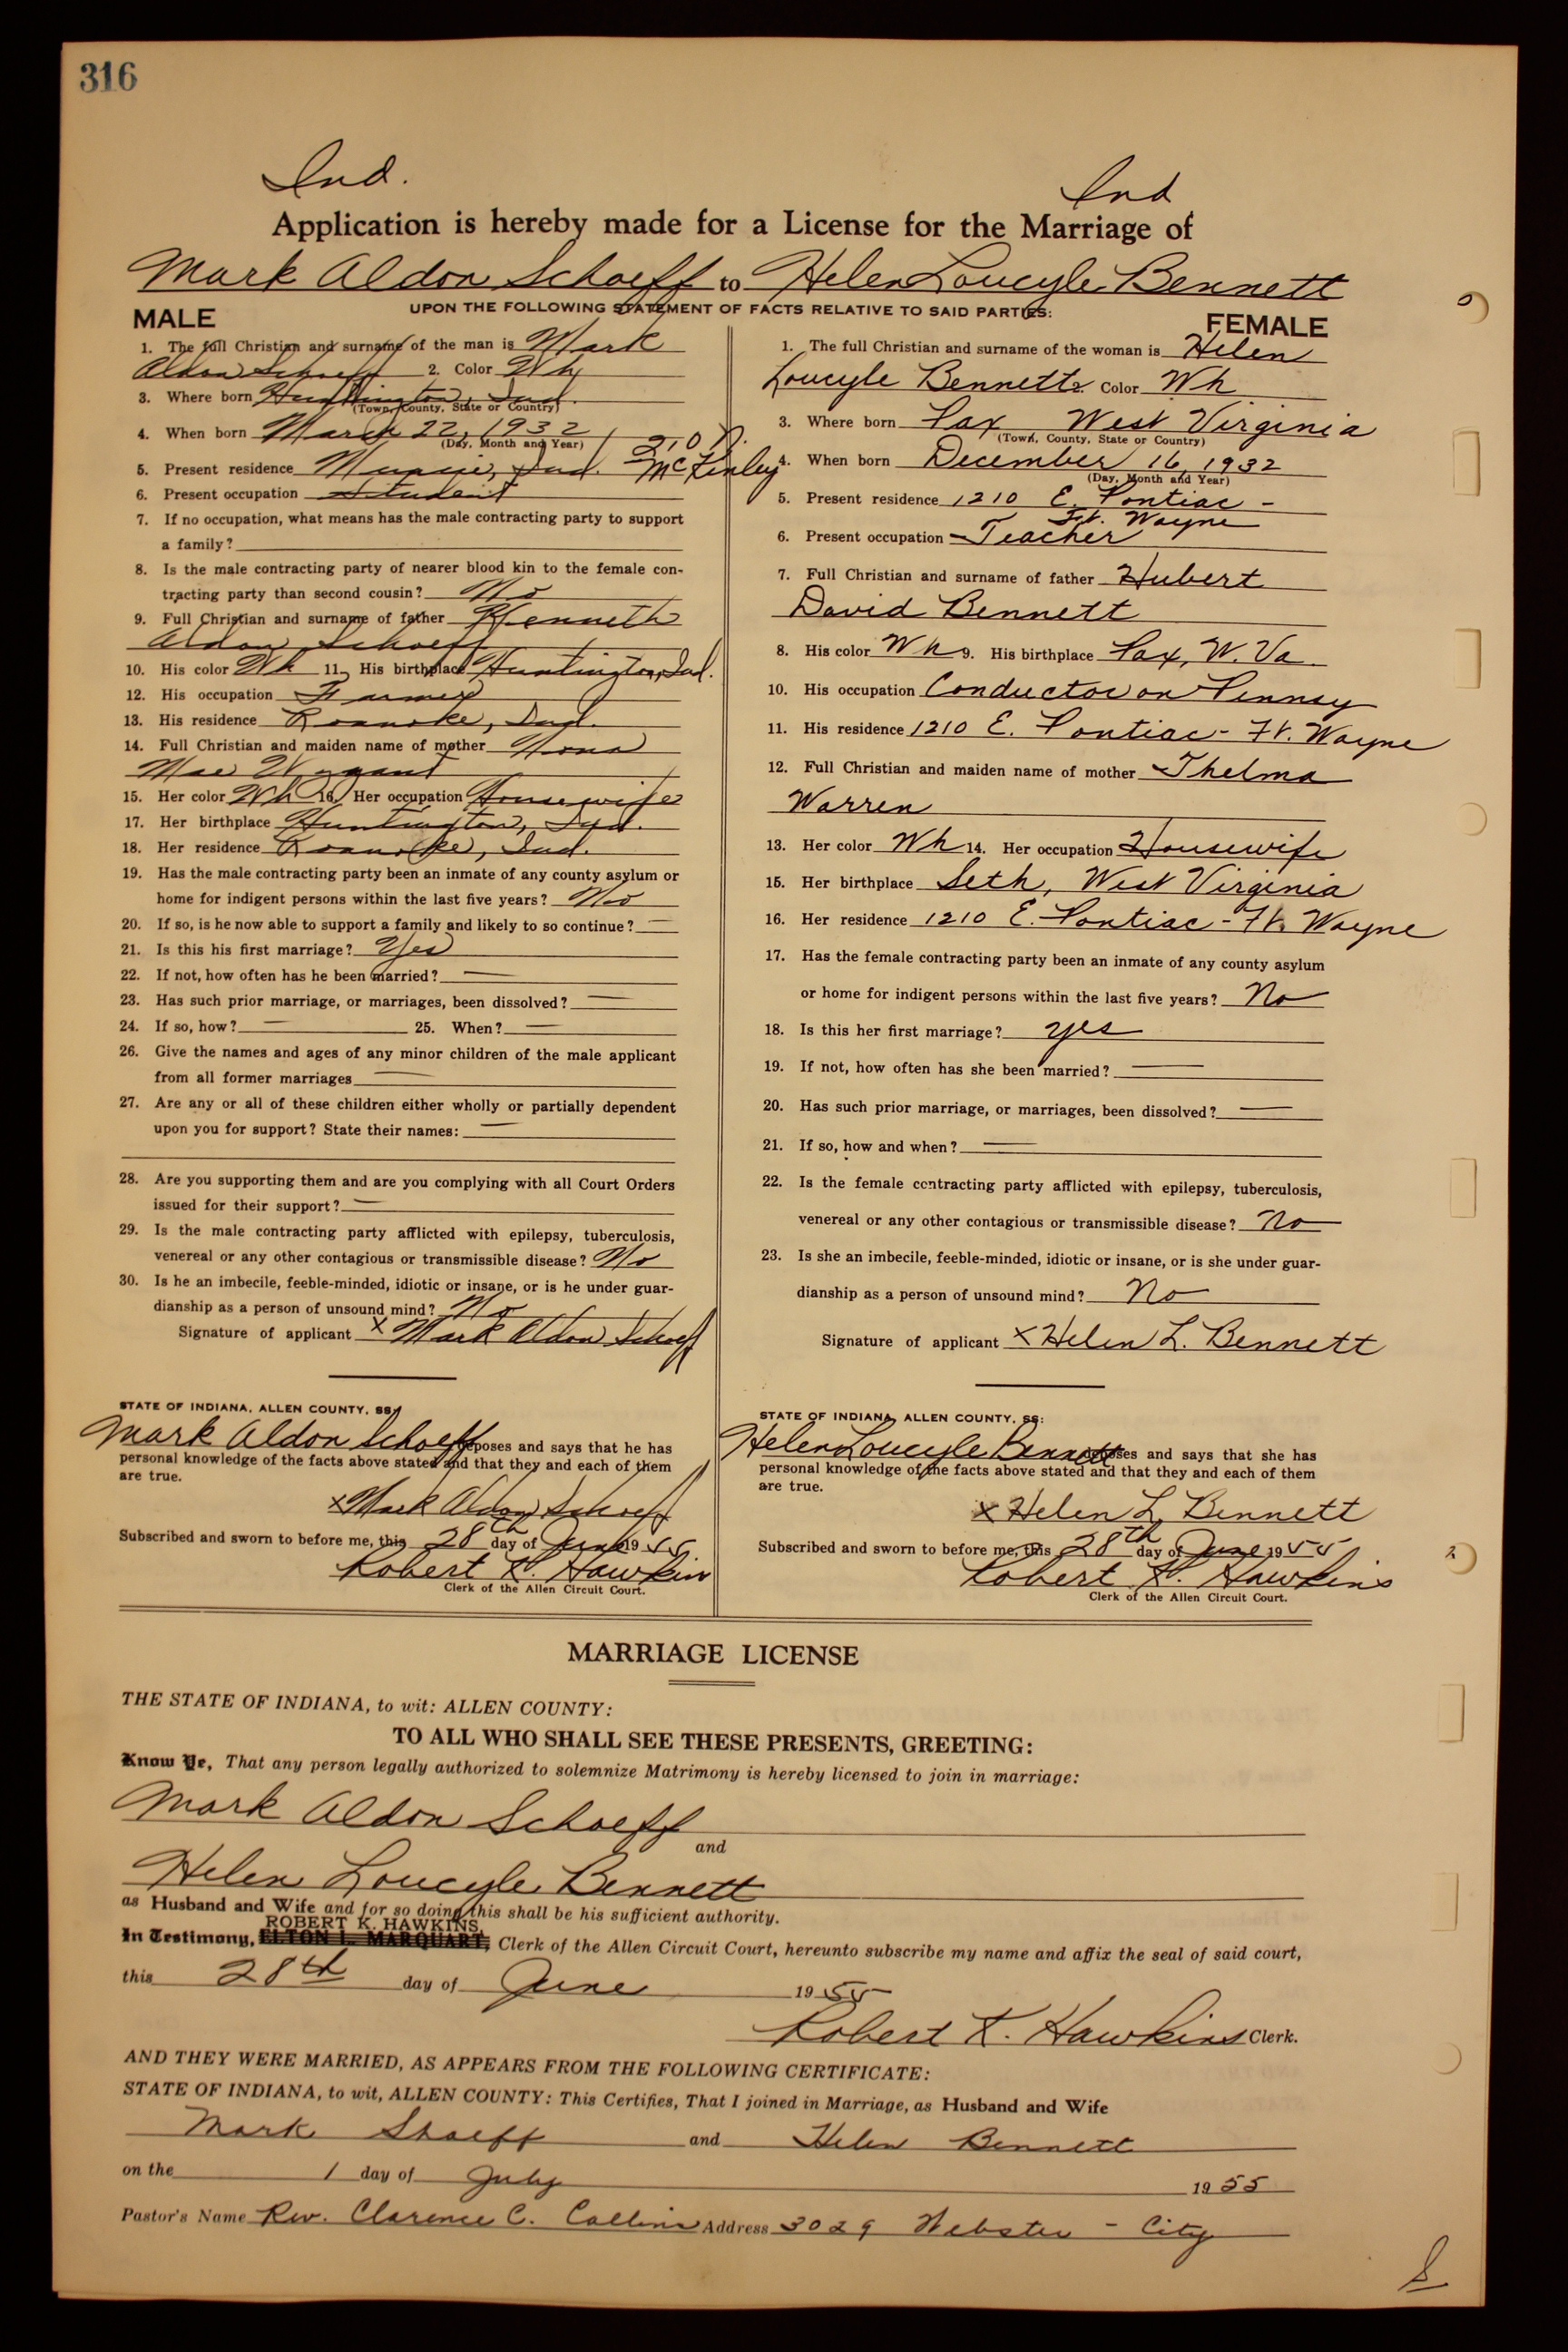 316
Ind. Ind
Application is hereby made for a License for the Marriage of
Mark Aldon Schaeff to Helen Loucyle Bennett
UPON THE FOLLOWING STATEMENT OF FACTS RELATIVE TO SAID PARTIES:
MALE
1. The full Christian and surname of the man is Mark
Aldon Schaeff 2. Color Wh
3. Where born Huntington, Ind.
(Town, County, State or Country)
4. When born March 22, 1932
(Day, Month and Year)
210 N.
5. Present residence Muncie, Ind. McKinley
6. Present occupation Student
7. If no occupation, what means has the male contracting party to support
a family?
8. Is the male contracting party of nearer blood kin to the female con-
tracting party than second cousin? No
9. Full Christian and surname of father Kenneth
Aldon Schaeff
10. His color Wh 11. His birthplace Huntington, Ind.
12. His occupation Farmer
13. His residence Roanoke, Ind.
14. Full Christian and maiden name of mother
Mae
15. Her color Wh 16. Her occupation Housewife
17. Her birthplace Huntington, Ind.
18. Her residence Roanoke, Ind.
19. Has the male contracting party been an inmate of any county asylum or
home for indigent persons within the last five years? No
20. If so, is he now able to support a family and likely to so continue? —
21. Is this his first marriage? Yes
22. If not, how often has he been married? —
23. Has such prior marriage, or marriages, been dissolved? —
24. If so, how? — 25. When? —
26. Give the names and ages of any minor children of the male applicant
from all former marriages —
27. Are any or all of these children either wholly or partially dependent
upon you for support? State their names: —
28. Are you supporting them and are you complying with all Court Orders
issued for their support? —
29. Is the male contracting party afflicted with epilepsy, tuberculosis,
venereal or any other contagious or transmissible disease? No
30. Is he an imbecile, feeble-minded, idiotic or insane, or is he under guar-
dianship as a person of unsound mind? No
Signature of applicant x Mark Aldon Schaeff
STATE OF INDIANA, ALLEN COUNTY, SS:
Mark Aldon Schaeff deposes and says that he has
personal knowledge of the facts above stated and that they and each of them
are true.
x Mark Aldon Schaeff
Subscribed and sworn to before me, this 28th day of June 1955
Robert K. Hawkins
Clerk of the Allen Circuit Court.
FEMALE
1. The full Christian and surname of the woman is Helen
Loucyle Bennett 2. Color Wh
3. Where born Lax West Virginia
(Town, County, State or Country)
4. When born December 16, 1932
(Day, Month and Year)
5. Present residence 1210 E. Pontiac -
Ft. Wayne
6. Present occupation Teacher
7. Full Christian and surname of father Hubert
David Bennett
8. His color Wh 9. His birthplace Lax, W. Va.
10. His occupation Conductor on Pennsy
11. His residence 1210 E. Pontiac - Ft. Wayne
12. Full Christian and maiden name of mother Thelma
Warren
13. Her color Wh 14. Her occupation Housewife
15. Her birthplace Seth, West Virginia
16. Her residence 1210 E. Pontiac - Ft. Wayne
17. Has the female contracting party been an inmate of any county asylum
or home for indigent persons within the last five years? No
18. Is this her first marriage? yes
19. If not, how often has she been married? —
20. Has such prior marriage, or marriages, been dissolved? —
21. If so, how and when? —
22. Is the female contracting party afflicted with epilepsy, tuberculosis,
venereal or any other contagious or transmissible disease? No
23. Is she an imbecile, feeble-minded, idiotic or insane, or is she under guar-
dianship as a person of unsound mind? No
Signature of applicant x Helen L. Bennett
STATE OF INDIANA, ALLEN COUNTY, SS:
Helen Loucyle Bennett deposes and says that she has
personal knowledge of the facts above stated and that they and each of them
are true.
x Helen L. Bennett
Subscribed and sworn to before me, this 28th day of June 1955
Robert K. Hawkins
Clerk of the Allen Circuit Court.
MARRIAGE LICENSE
THE STATE OF INDIANA, to wit: ALLEN COUNTY:
TO ALL WHO SHALL SEE THESE PRESENTS, GREETING:
Know Ye, That any person legally authorized to solemnize Matrimony is hereby licensed to join in marriage:
Mark Aldon Schaeff
and
Helen Loucyle Bennett
as Husband and Wife and for so doing this shall be his sufficient authority.
ROBERT K. HAWKINS,
In Testimony, ELTON L. MARQUART, Clerk of the Allen Circuit Court, hereunto subscribe my name and affix the seal of said court,
this 28th day of June 1955
Robert K. Hawkins Clerk.
AND THEY WERE MARRIED, AS APPEARS FROM THE FOLLOWING CERTIFICATE:
STATE OF INDIANA, to wit, ALLEN COUNTY: This Certifies, That I joined in Marriage, as Husband and Wife
Mark Shaeff and Helen Bennett
on the 1 day of July 1955
Pastor's Name Rev. Clarence C. Collins Address 3029 Webster - City